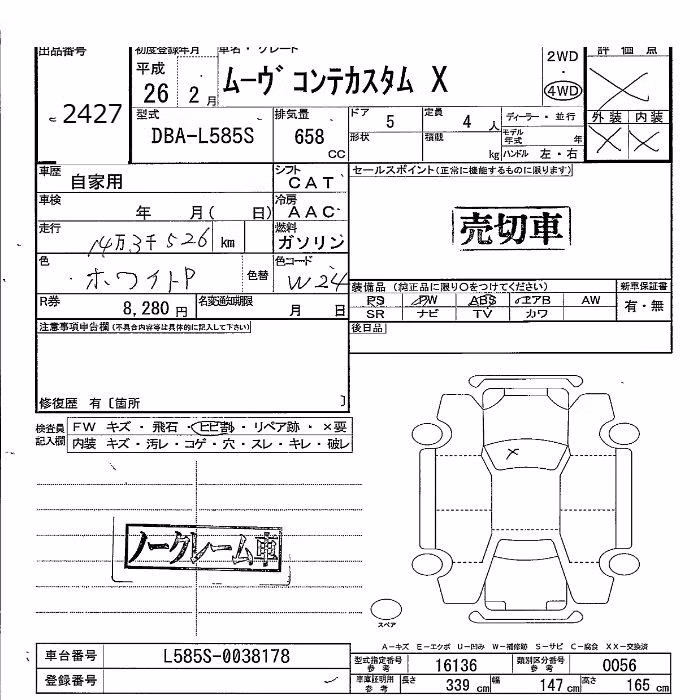 出品番号 初度登録年月 車名・グレード 2WD 評価点
2427 平成 26年 2月 ムーヴ コンテカスタム X ・ 4WD ×
型式 排気量 ドア 定員 ディーラー・並行 外装 内装
DBA-L585S 658 CC 5 4人 モデル年式 年 × ×
形状 積載 kg ハンドル 左・右
車歴 自家用 シフト CAT セールスポイント(正常に機能するものに限ります)
車検 年 月( 日) 冷房 AAC
売切車
走行 14万3千526 km 燃料 ガソリン
色 ホワイトP 色替 色コード W24
装備品 (純正品に限り○をつけてください) 新車保証書
R券 8,280円 名変通知期限 月 日
PS PW ABS エアB AW 有・無
SR ナビ TV カワ
注意事項申告欄(不具合内容等は具体的に記入して下さい) 後日品
修復歴 有〔箇所 〕
検査員記入欄 FW キズ・飛石・ヒビ割・リペア跡・×要
内装 キズ・汚レ・コゲ・穴・スレ・キレ・破レ
×
ノークレーム車
スペア
A-キズ E-エクボ U-凹み W-補修跡 S-サビ C-腐食 XX-交換済
車台番号 L585S-0038178 型式指定番号 参考 16136 類別区分番号 参考 0056
登録番号 車庫証明用 参考 長さ 339 cm 幅 147 cm 高さ 165 cm